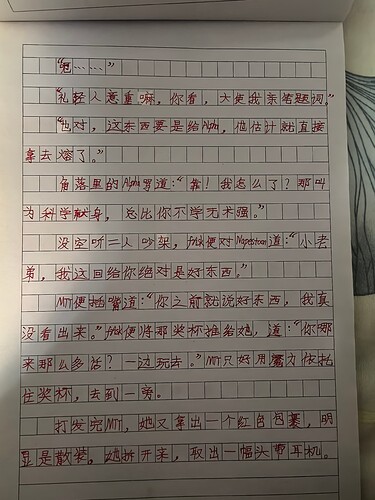 “呃……”
“礼轻人意重嘛，你看，大使我亲笔题词。”
“也对，这东西要是给Alph，他估计就直接
拿去熔了。”
角落里的Alph骂道：“靠！我怎么了？那叫
为科学献身，总比你不学无术强。”
没空听二人吵架，便对道：“小老
弟，我这回给你绝对是好东西。”
MTT便插嘴道：“你之前就说好东西，我真
没看出来。”便将那奖杯推给她，道：“你哪
来那么多话？一边玩去。”MTT只好用魔方依托
住奖杯，去到一旁。
打发完MTT，她又拿出一个红色包裹，明
显是散装，她拆开来，取出一幅头带耳机。